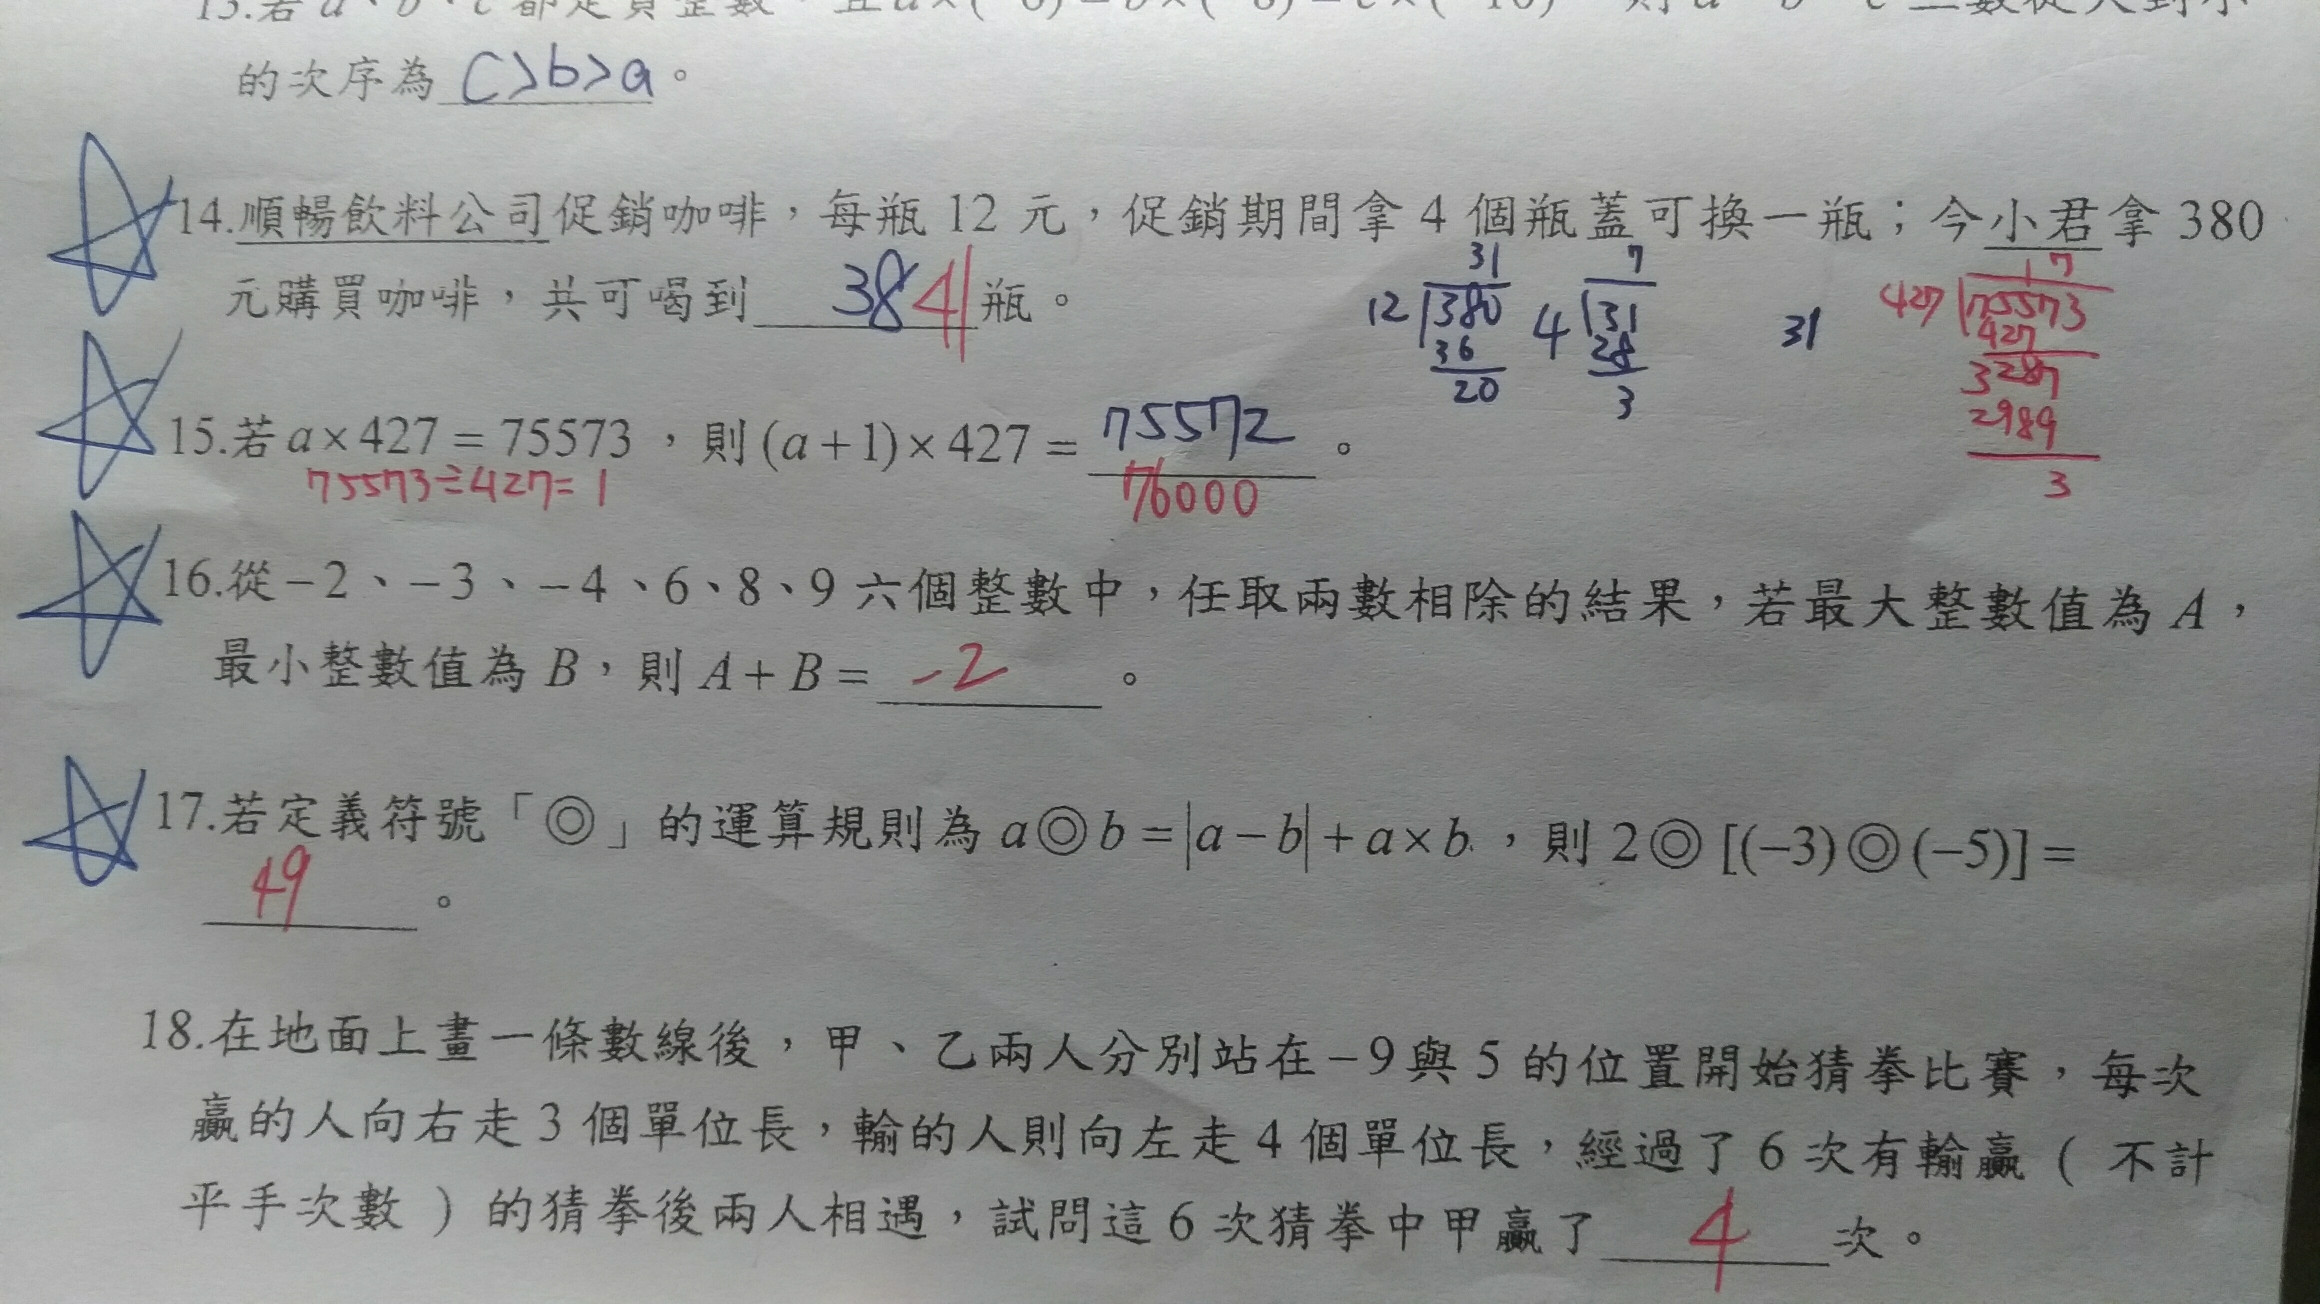 13.若 a、b、c 都是負整數，且 a×(-6)=b×(-8)=c×(-10)，則 a、b、c 三數從大到小
的次序為 c>b>a。
14.順暢飲料公司促銷咖啡，每瓶 12 元，促銷期間拿 4 個瓶蓋可換一瓶；今小君拿 380
元購買咖啡，共可喝到 38 41 瓶。
31
12 380
36
20
7
4 31
28
3
31
17
427 75573
427
3287
2989
3
15.若 a×427=75573，則(a+1)×427= 75572。
75573÷427=1
76000
16.從-2、-3、-4、6、8、9 六個整數中，任取兩數相除的結果，若最大整數值為 A，
最小整數值為 B，則 A+B= -2。
17.若定義符號「◎」的運算規則為 a◎b=|a-b|+a×b，則 2◎[(-3)◎(-5)]=
49。
18.在地面上畫一條數線後，甲、乙兩人分別站在-9與 5 的位置開始猜拳比賽，每次
贏的人向右走 3 個單位長，輸的人則向左走 4 個單位長，經過了 6 次有輸贏（不計
平手次數）的猜拳後兩人相遇，試問這 6 次猜拳中甲贏了 4 次。